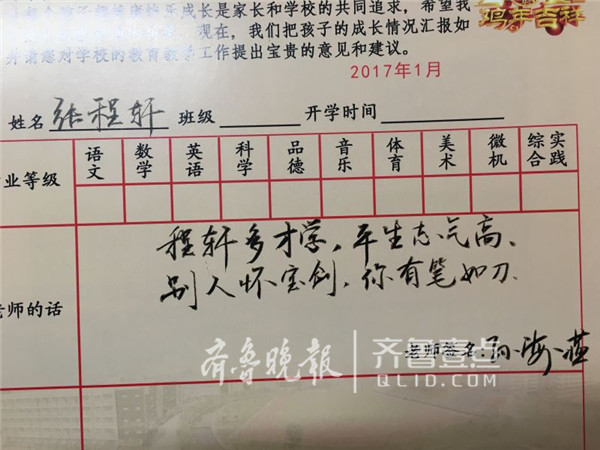 鸡年吉祥
快乐成长是家长和学校的共同追求,希望我
现在,我们把孩子的成长情况汇报如
对学校的教育教学工作提出宝贵的意见和建议。
2017年1月
姓名 张程轩 班级 开学时间
业等级 语文 数学 英语 科学 品德 音乐 体育 美术 微机 综合实践
程轩多才学,平生志气高、
老师的话
别人怀宝剑,你有笔如刀.
老师签名:孙海燕
齐鲁晚报 齐鲁壹点
QLID.COM